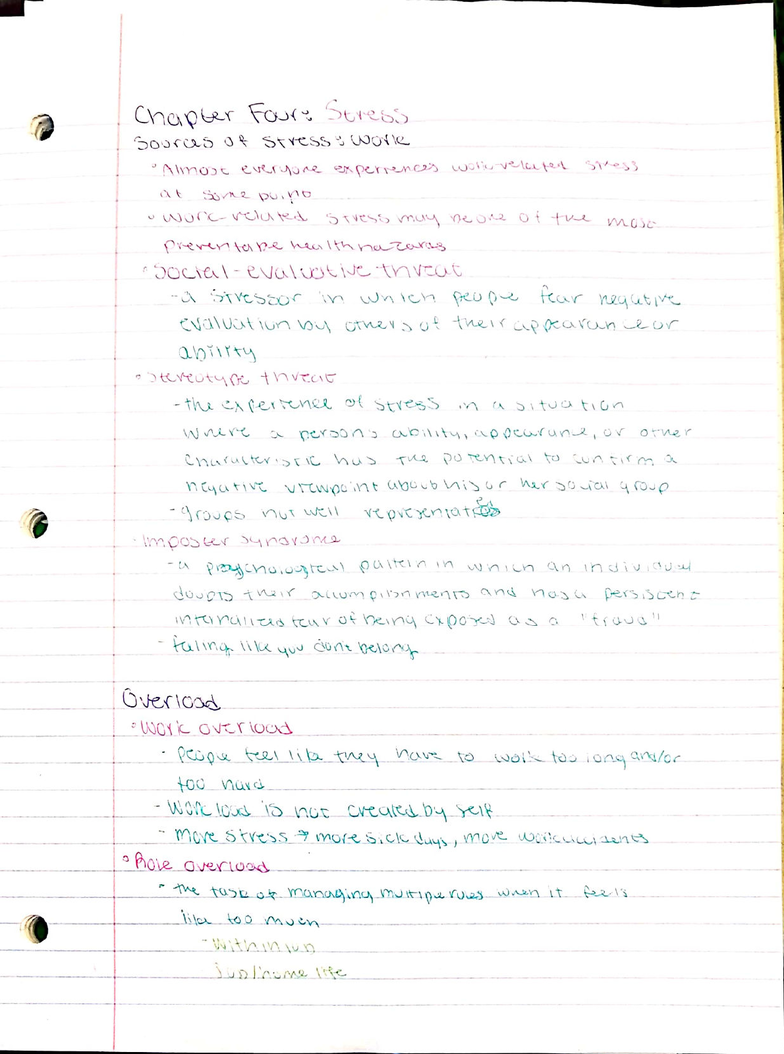 Chapter Four: Stress
Sources of Stress: Work
• Almost everyone experiences work-related stress
at some point
• Work-related stress may be one of the most
preventable health hazards
• Social-evaluative threat
- a stressor in which people fear negative
evaluation by others of their appearance or
ability
• Stereotype threat
- the experience of stress in a situation
where a persons ability, appearance, or other
characteristic has the potential to confirm a
negative viewpoint about his or her social group
- groups not well represented
• Imposter syndrome
- a psychological pattern in which an individual
doubts their accomplishments and has a persistent
internalized fear of being exposed as a "fraud"
- feling like you dont belong
Overload
• Work overload
- people feel like they have to work too long and/or
too hard
- Workload is not created by self
- more stress → more sick days, more work accidents
• Role overload
- the task of managing multiple roles when it feels
like too much
- within job
job/home life